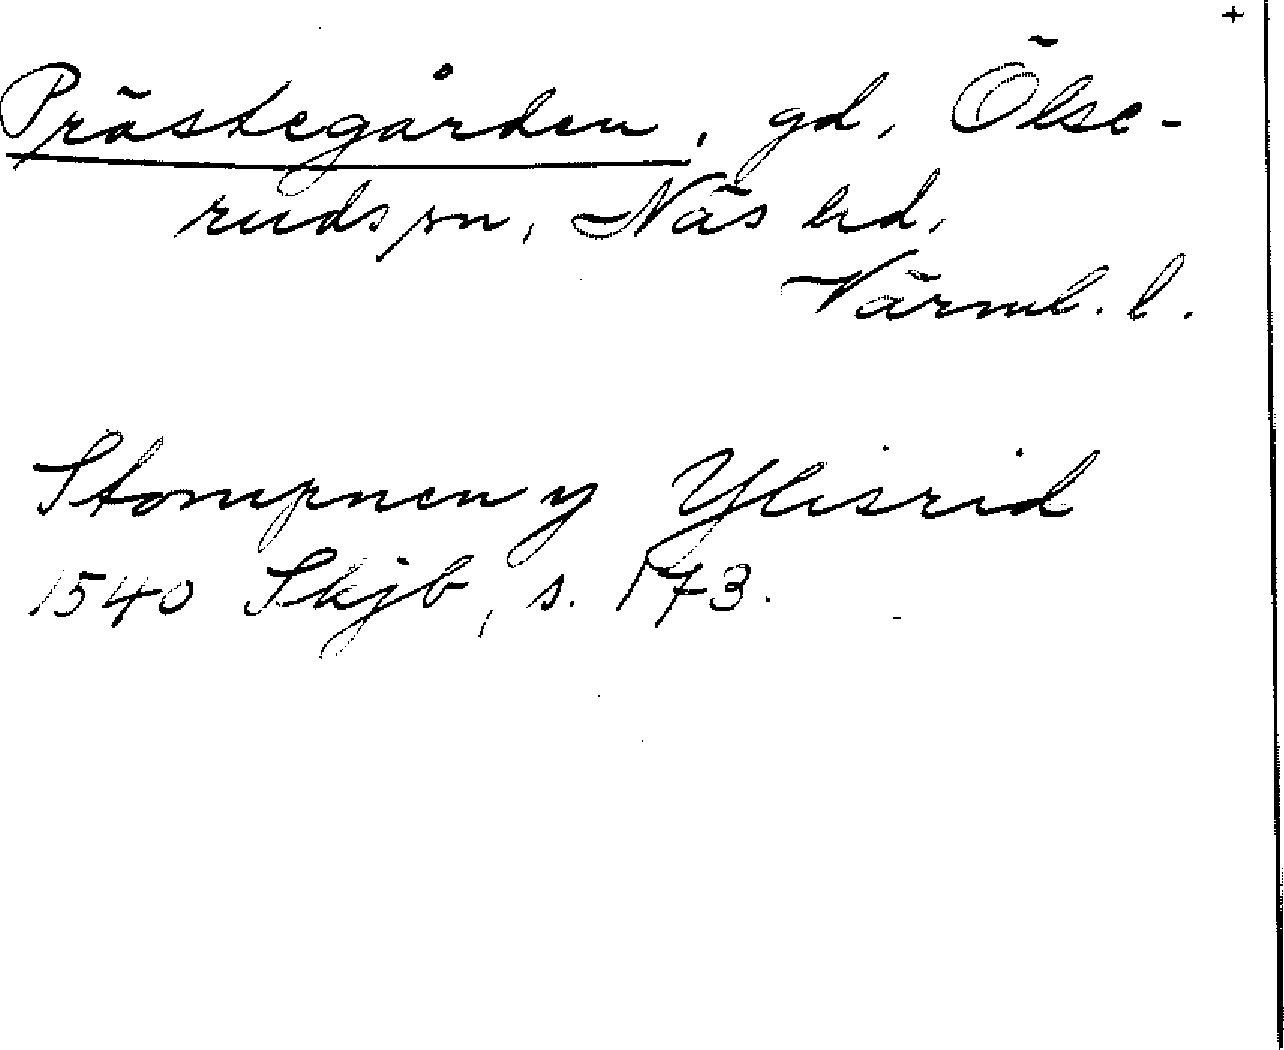 +
Prästegården, gd, Ölse-
ruds sn, Näs hd,
Värml. l.
Stompnen y Ylisrid
1540 Skjb, s. 173.